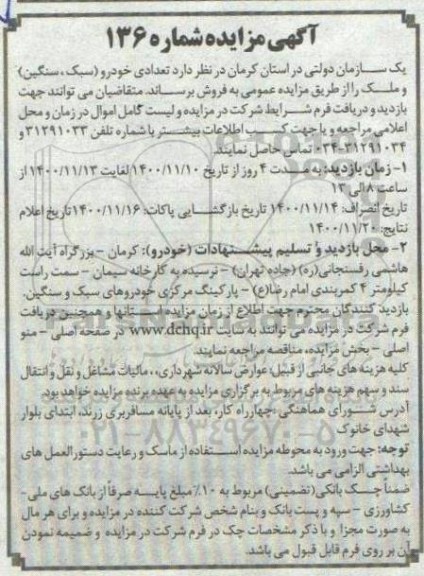 آگهی مزایده شماره ۱۳۶
یک سازمان دولتی در استان کرمان در نظر دارد تعدادی خودرو (سبک ، سنگین)
و ملک را از طریق مزایده عمومی به فروش برساند. متقاضیان می توانند جهت
بازدید و دریافت فرم شرایط شرکت در مزایده و لیست کامل اموال در زمان و محل
اعلامی مراجعه و یا جهت کسب اطلاعات بیشتر با شماره تلفن ۳۱۲۹۱۰۳۳ و
۰۳۴-۳۱۲۹۱۰۳۴ تماس حاصل نمایند.
۱- زمان بازدید: به مدت ۴ روز از تاریخ ۱۴۰۰/۱۱/۱۰ لغایت ۱۴۰۰/۱۱/۱۳ از
ساعت ۸ الی ۱۳
تاریخ انصراف: ۱۴۰۰/۱۱/۱۴ تاریخ بازگشایی پاکات: ۱۴۰۰/۱۱/۱۶ تاریخ اعلام
نتایج: ۱۴۰۰/۱۱/۲۰
۲- محل بازدید و تسلیم پیشنهادات (خودرو): کرمان - بزرگراه آیت الله
هاشمی رفسنجانی(ره) (جاده تهران) - نرسیده به کارخانه سیمان - سمت راست
کیلومتر ۴ کمربندی امام رضا(ع) - پارکینگ مرکزی خودروهای سبک و سنگین.
بازدید کنندگان محترم جهت اطلاع از زمان مزایده استانها و همچنین دریافت
فرم شرکت در مزایده می توانند به سایت www.dchq.ir در صفحه اصلی - منو
اصلی - بخش مزایده، مناقصه مراجعه نمایند.
کلیه هزینه های جانبی از قبیل: عوارض سالانه شهرداری، مالیات مشاغل و نقل و انتقال
سند و سهم هزینه های مربوط به برگزاری مزایده به عهده برنده مزایده خواهد بود.
آدرس شورای هماهنگی: چهارراه کار، بعد از پایانه مسافربری زرند، ابتدای بلوار
شهدای خانوک
توجه: جهت ورود به محوطه مزایده استفاده از ماسک و رعایت دستورالعمل های
بهداشتی الزامی می باشد.
ضمناً چک بانکی (تضمینی) مربوط به ۱۰٪ مبلغ پایه صرفاً از بانک های ملی -
کشاورزی - سپه و پست بانک و بنام شخص شرکت کننده در مزایده و برای هر مال
به صورت مجزا و با ذکر مشخصات چک در فرم شرکت در مزایده و ضمیمه نمودن
آن بر روی فرم قابل قبول می باشد.
۰۲۱-۸۸۳۴۹۶۷۰-۵